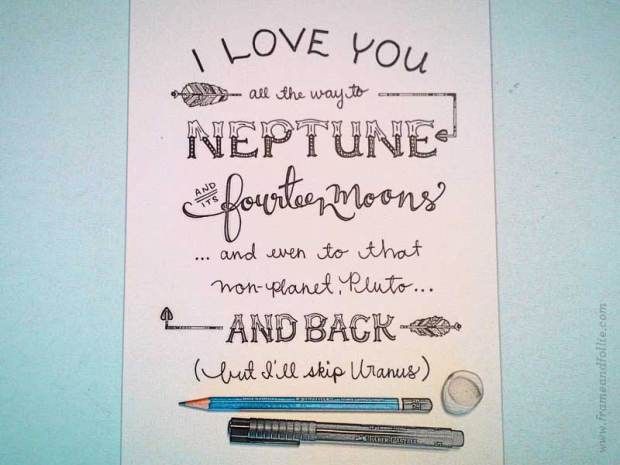 I LOVE YOU
all the way to
NEPTUNE
AND ITS fourteen moons
... and even to that
non-planet, Pluto...
AND BACK
(but I'll skip Uranus)
www.frameandfolite.com